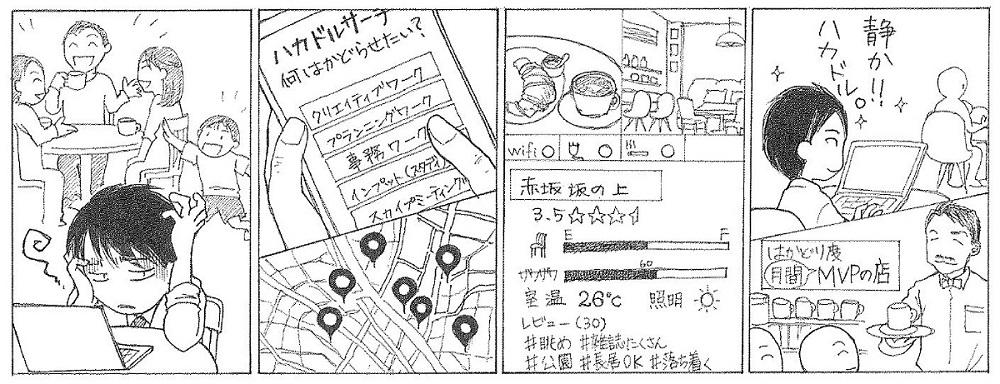 ハカドルサーチ
何はかどらせたい?
クリエイティブワーク
プランニングワーク
事務ワーク
インプット(スタディ)
スカイプミーティング
wifi
赤坂 坂の上
3.5☆☆☆
E F
ザワザワ 60
室温 26℃ 照明
レビュー(30)
#眺め #雑誌たくさん
#公園 #長居OK #落ち着く
静か!!
ハカドル。
はかどり度
月間 MVPの店